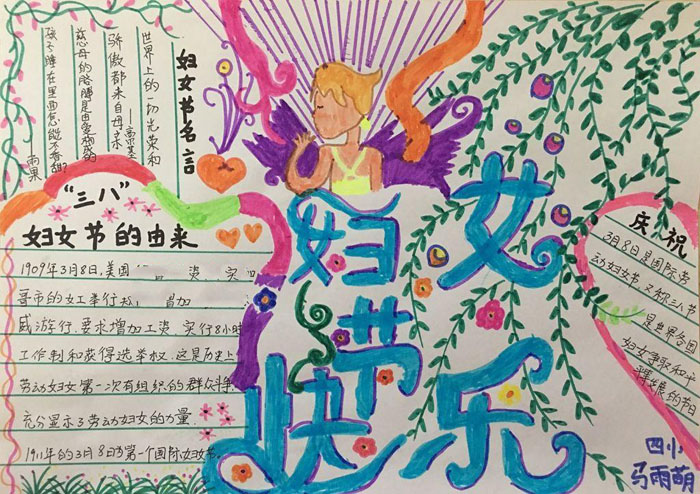 妇女节名言
世界上的一切光荣和
骄傲都来自母亲
——高尔基
慈母的胳膊是由爱构成的
孩子睡在里面怎能不香甜?
——雨果
“三八”
妇女节的由来
1909年3月8日,美国 资 实
哥市的女工举行 增加
威游行,要求增加工资 实行8小时
工作制和获得选举权.这是历史上
劳动妇女第一次有组织的群众斗争
充分显示了劳动妇女的力量.
1911年的3月8日为第一个国际妇女节.
妇女节
快乐
庆祝
3月8日是国际劳
动妇女节 又称三八节
是世界各国
妇女争取和平
发展的节日
四小
马雨萌